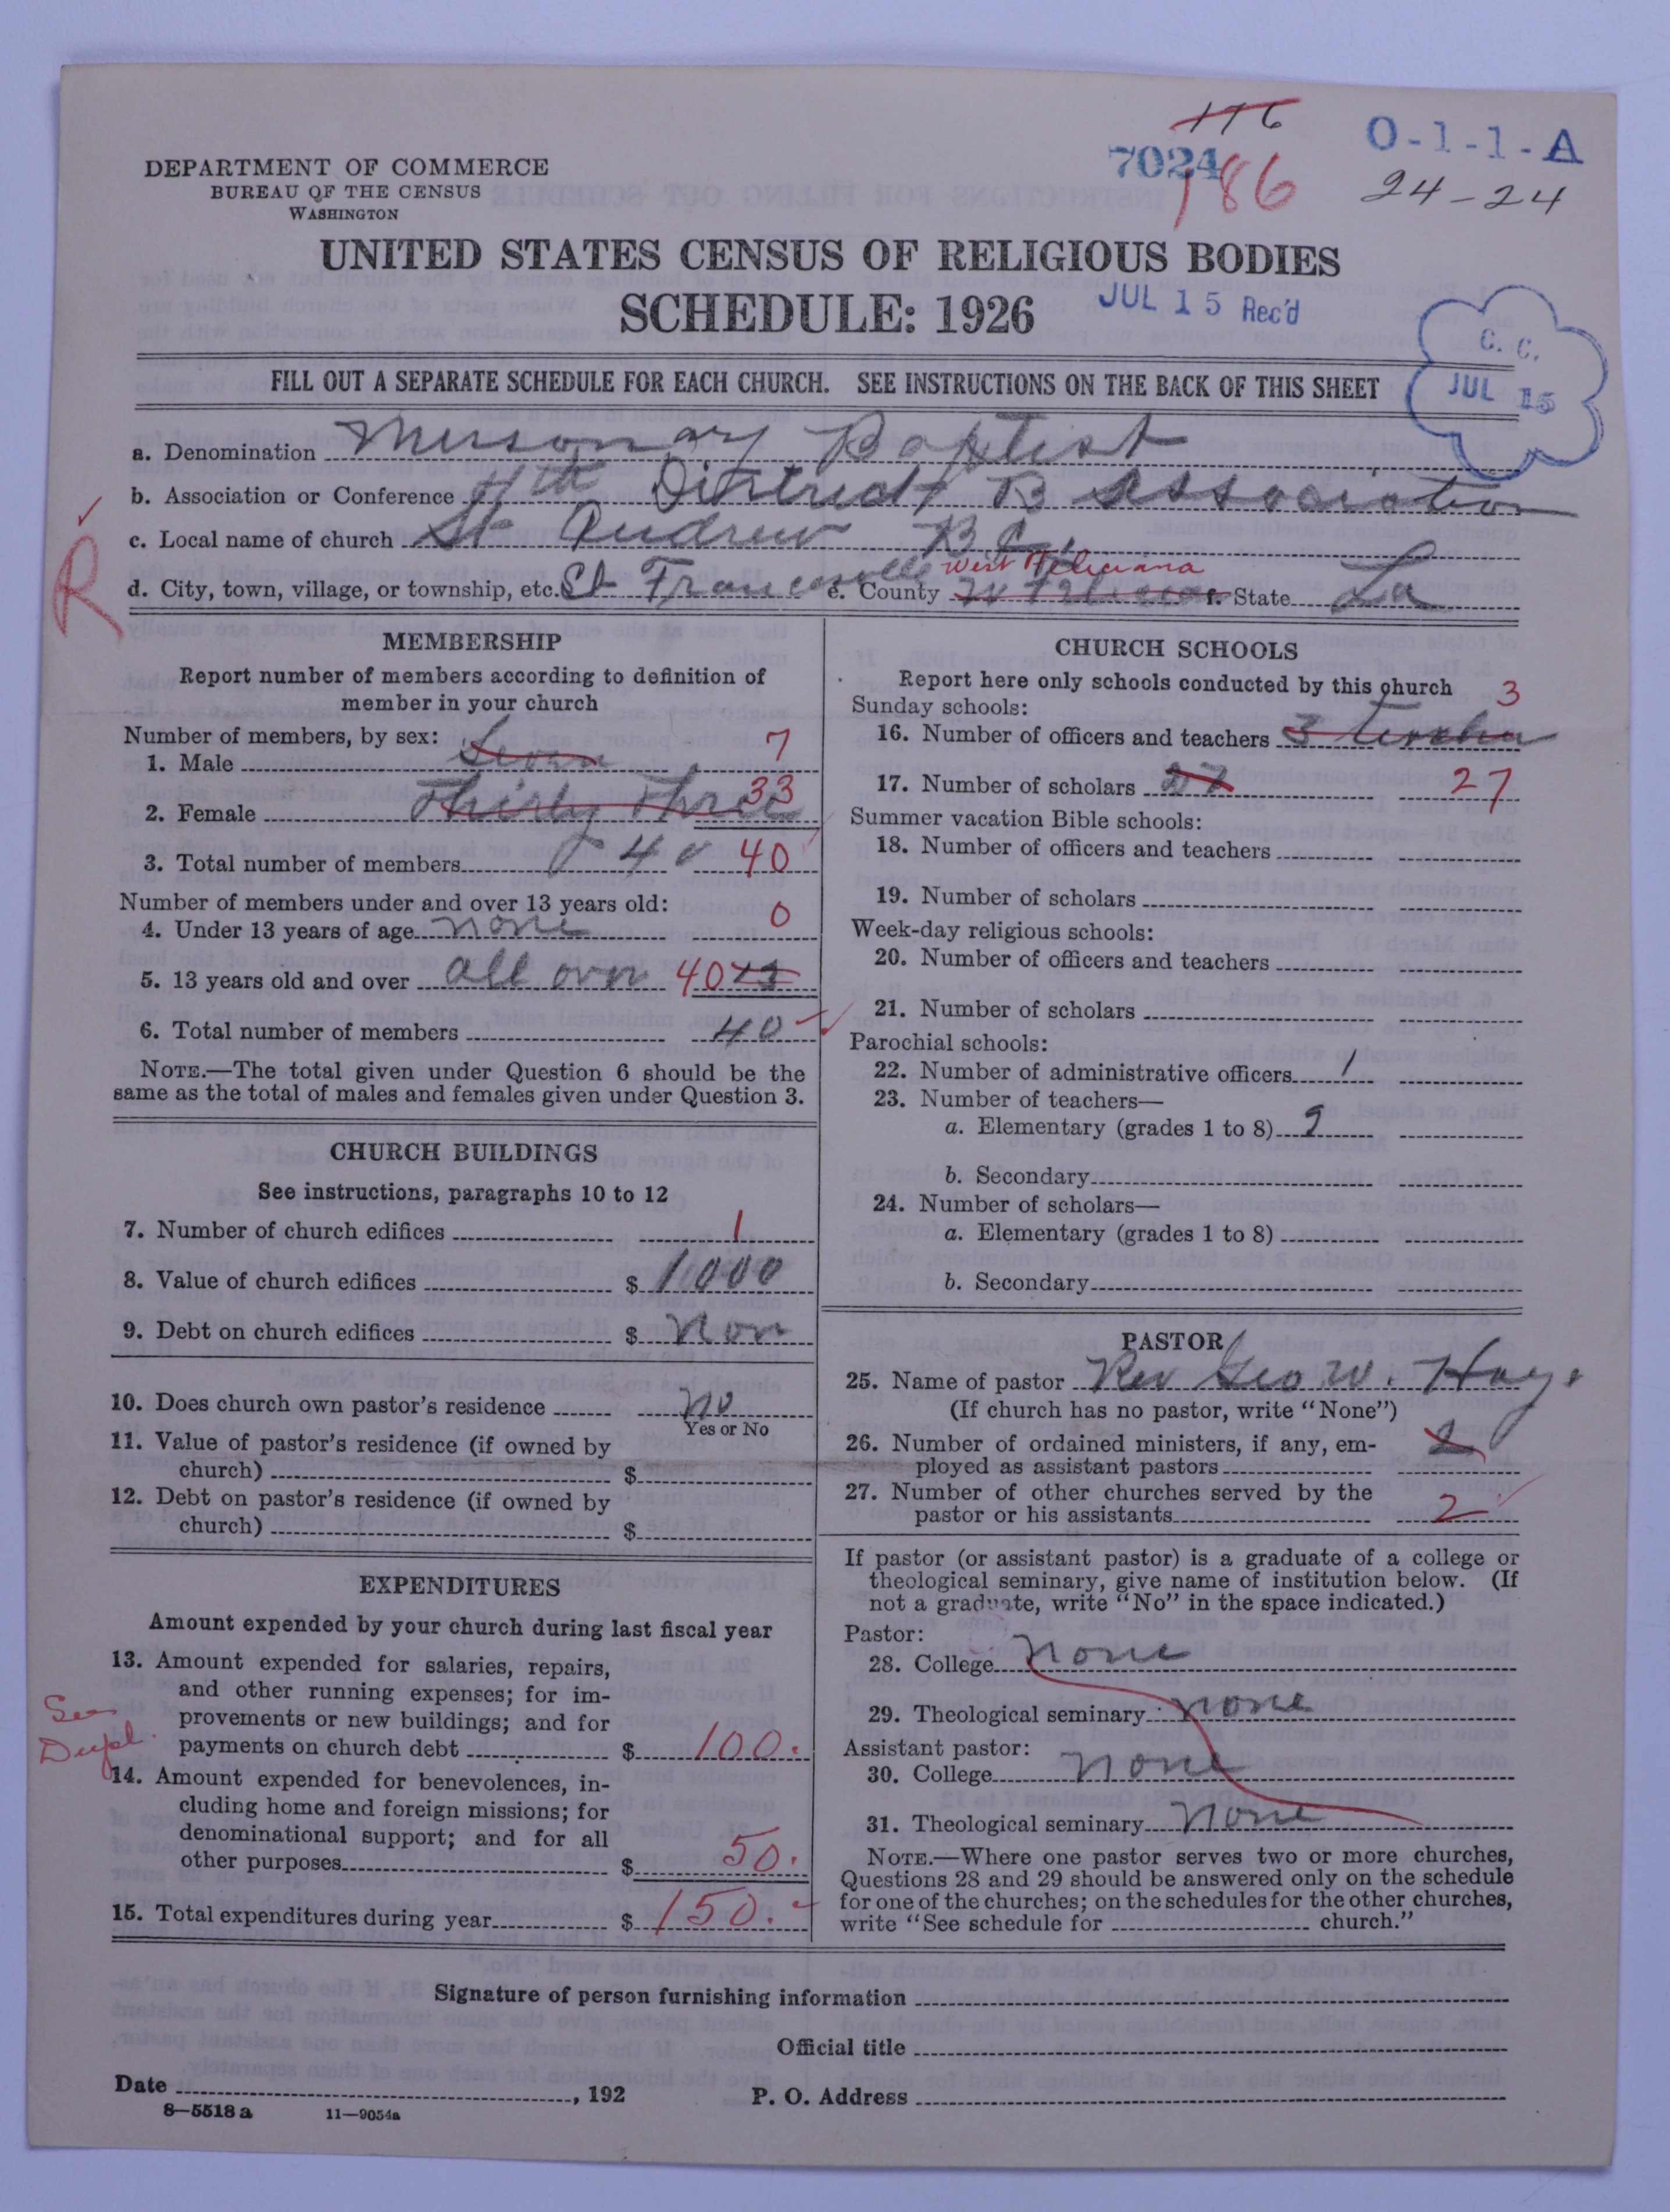 176
7024
186
O-1-1-A
24-24
DEPARTMENT OF COMMERCE
BUREAU OF THE CENSUS
WASHINGTON
UNITED STATES CENSUS OF RELIGIOUS BODIES
SCHEDULE: 1926
JUL 15 Rec'd
C. C.
JUL 15
FILL OUT A SEPARATE SCHEDULE FOR EACH CHURCH. SEE INSTRUCTIONS ON THE BACK OF THIS SHEET
a. Denomination Baptist
b. Association or Conference 4th District B Association
c. Local name of church St Andrew B C.
R
West Feliciana
d. City, town, village, or township, etc. St Francesville e. County W Feliciana f. State La
MEMBERSHIP
Report number of members according to definition of
member in your church
Number of members, by sex:
1. Male Seven 7
2. Female Thirty Three 33
3. Total number of members 40 40
Number of members under and over 13 years old:
4. Under 13 years of age none 0
5. 13 years old and over all over 40 13
6. Total number of members 40
NOTE.—The total given under Question 6 should be the
same as the total of males and females given under Question 3.
CHURCH BUILDINGS
See instructions, paragraphs 10 to 12
7. Number of church edifices 1
8. Value of church edifices $ 1000
9. Debt on church edifices $ Non
10. Does church own pastor's residence no
Yes or No
11. Value of pastor's residence (if owned by
church) $
12. Debt on pastor's residence (if owned by
church) $
EXPENDITURES
Amount expended by your church during last fiscal year
13. Amount expended for salaries, repairs,
and other running expenses; for im-
provements or new buildings; and for
payments on church debt $ 100.
See
Dupl.
14. Amount expended for benevolences, in-
cluding home and foreign missions; for
denominational support; and for all
other purposes $ 50.
15. Total expenditures during year $ 150.
CHURCH SCHOOLS
Report here only schools conducted by this church
Sunday schools:
16. Number of officers and teachers 3 teacher 3
17. Number of scholars 27 27
Summer vacation Bible schools:
18. Number of officers and teachers
19. Number of scholars
Week-day religious schools:
20. Number of officers and teachers
21. Number of scholars
Parochial schools:
22. Number of administrative officers 1
23. Number of teachers—
a. Elementary (grades 1 to 8) 9
b. Secondary
24. Number of scholars—
a. Elementary (grades 1 to 8)
b. Secondary
PASTOR
25. Name of pastor Rev Geo. W. Hays
(If church has no pastor, write "None")
26. Number of ordained ministers, if any, em-
ployed as assistant pastors 2
27. Number of other churches served by the
pastor or his assistants 2
If pastor (or assistant pastor) is a graduate of a college or
theological seminary, give name of institution below. (If
not a graduate, write "No" in the space indicated.)
Pastor:
28. College none
29. Theological seminary none
Assistant pastor:
30. College none
31. Theological seminary none
NOTE.—Where one pastor serves two or more churches,
Questions 28 and 29 should be answered only on the schedule
for one of the churches; on the schedules for the other churches,
write "See schedule for church."
Signature of person furnishing information
Official title
Date , 192
P. O. Address
8—5518 a 11—9054a